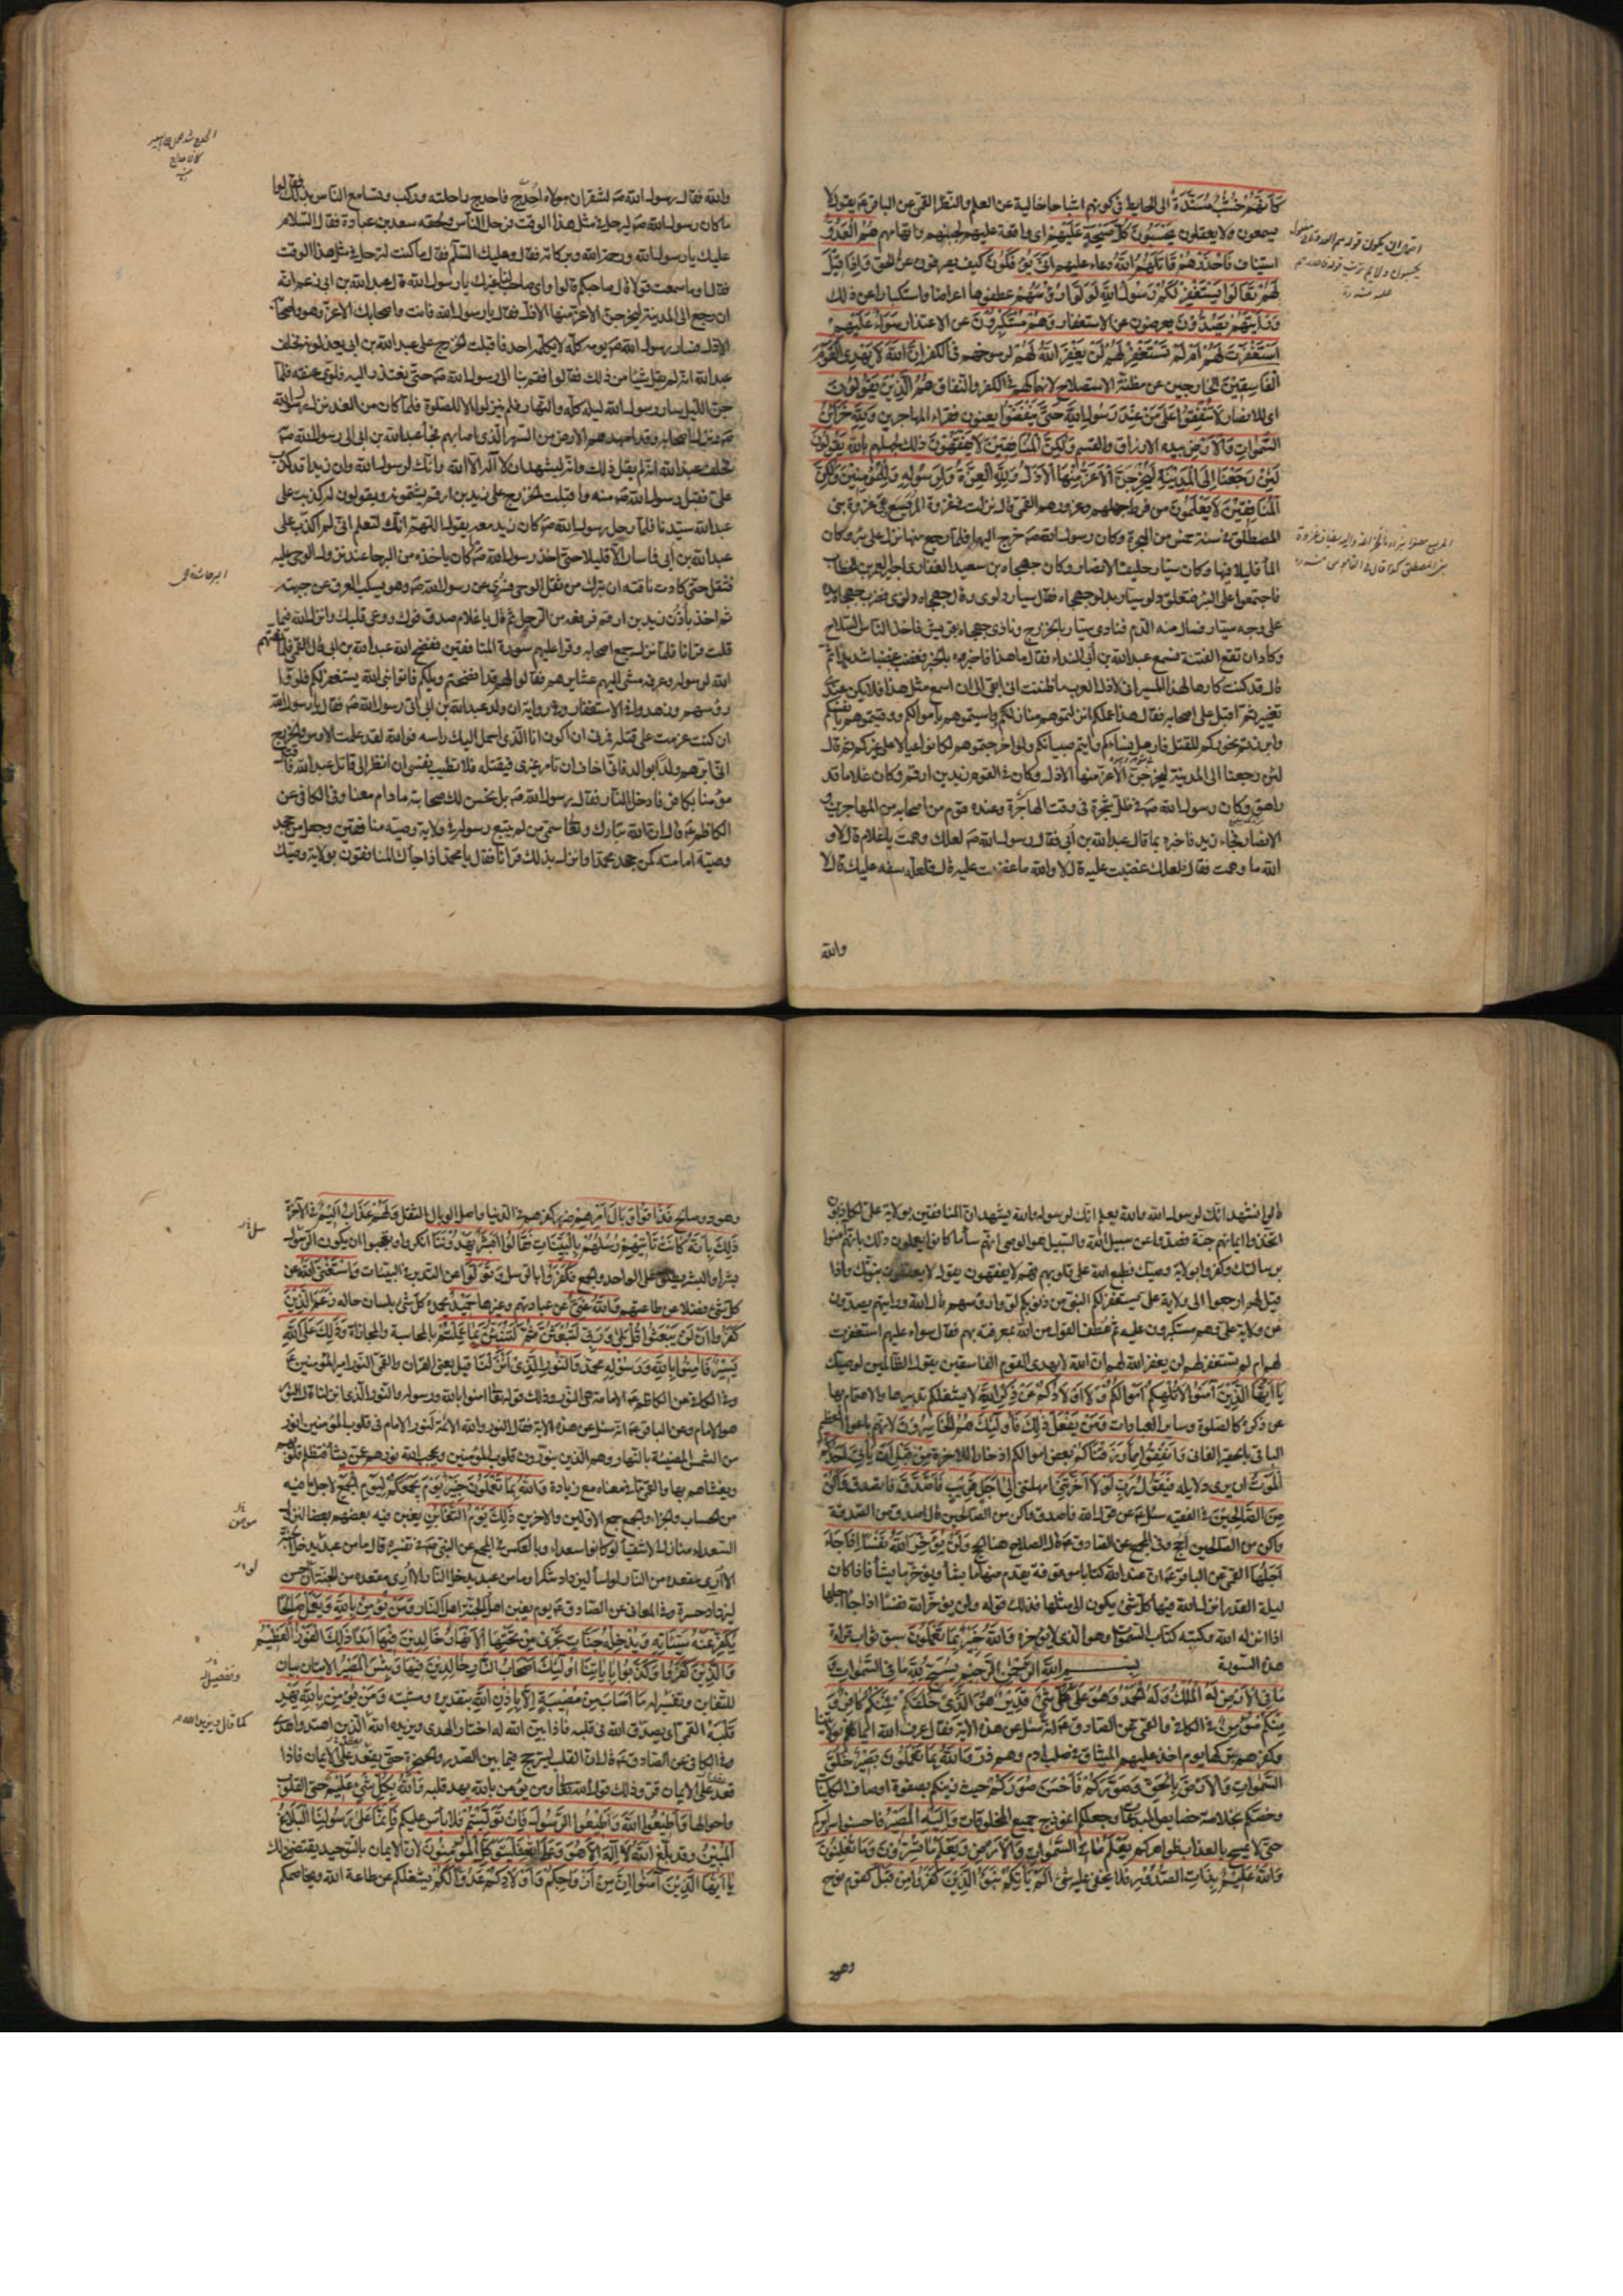 كَأَنَّهُمْ خُشُبٌ مُسَنَّدَةٌ الى الحايط في كونهم اشباحا خالية عن العلم والنظر القمي عن الباقر عم يقول لا
يسمعون ولا يعقلون يَحْسَبُونَ كُلَّ صَيْحَةٍ عَلَيْهِمْ اى واقعة عليهم لجبنهم واتهامهم هُمُ الْعَدُوُّ
استيناف فَاحْذَرْهُمْ قَاتَلَهُمُ اللهُ دعاء عليهم أَنَّى يُؤْفَكُونَ كيف يصرفون عن الحق وَإِذَا قِيلَ
لَهُمْ تَعَالَوْا يَسْتَغْفِرْ لَكُمْ رَسُولُ اللهِ لَوَّوْا رُؤُسَهُمْ عطفوها اعراضا واستكبارا عن ذلك
وَرَأَيْتَهُمْ يَصُدُّونَ يعرضون عن الاستغفار وَهُمْ مُسْتَكْبِرُونَ عن الاعتذار سَوَاءٌ عَلَيْهِمْ
أَسْتَغْفَرْتَ لَهُمْ أَمْ لَمْ تَسْتَغْفِرْ لَهُمْ لَنْ يَغْفِرَ اللهُ لَهُمْ لرسوخهم في الكفر إِنَّ اللهَ لَا يَهْدِي الْقَوْمَ
الْفَاسِقِينَ الخارجين عن مظنة الاستصلاح لانهماكهم في الكفر والنفاق هُمُ الَّذِينَ يَقُولُونَ
اى للانصار لَا تُنْفِقُوا عَلَى مَنْ عِنْدَ رَسُولِ اللهِ حَتَّى يَنْفَضُّوا يعنون فقراء المهاجرين وَلِلهِ خَزَائِنُ
السَّمٰوَاتِ وَالْأَرْضِ بيده الارزاق والقسم وَلَكِنَّ الْمُنَافِقِينَ لَا يَفْقَهُونَ ذلك لجهلهم بالله يَقُولُونَ
لَئِنْ رَجَعْنَا إِلَى الْمَدِينَةِ لَيُخْرِجَنَّ الْأَعَزُّ مِنْهَا الْأَذَلَّ وَلِلهِ الْعِزَّةُ وَلِرَسُولِهِ وَلِلْمُؤْمِنِينَ وَلَكِنَّ
الْمُنَافِقِينَ لَا يَعْلَمُونَ من فرط جهلهم وغرورهم القمي قال نزلت في غزوة المريسيع وهي غزوة بنى
المصطلق في سنة خمس من الهجرة وكان رسول الله ص خرج اليها فلما رجع منها نزل على بئر وكان
الماء قليلا فيها وكان سيار حليف الانصار وكان جهجاه بن سعيد الغفارى اجير لعمر بن الخطاب
فاجتمعوا على البئر فتعلق دلو سيار بدلو جهجاه فقال سيار دلوى وقال جهجاه دلوى فضرب جهجاه يده
على وجه سيار فسال منه الدم فنادى سيار بالخزرج ونادى جهجاه بقريش فاخذ الناس السلاح
وكاد ان تقع الفتنة فسمع عبدالله بن أبي النداء فقال ما هذا فاخبروه بالخبر فغضب غضبا شديدا ثم
قال قد كنت كارها لهذا المسير انى لاذل العرب ما ظننت انى ابقى الى ان اسمع مثل هذا فلا يكن عندى
تغيير ثم اقبل على اصحابه فقال هذا عملكم انزلتموهم منازلكم وواسيتموهم باموالكم ووقيتموهم بانفسكم
وابرزتم نحوركم للقتل فارمل نساءكم وايتم صبيانكم ولو اخرجتموهم لكانوا عيالا على غيركم ثم قال
لئن رجعنا الى المدينة ليخرجن الاعز منها الاذل وكان في القوم زيد بن ارقم وكان غلاما قد
راهق وكان رسول الله ص في ظل شجرة في وقت الهاجرة وعنده قوم من اصحابه من المهاجرين و
الانصار فجاء زيد فاخبره بما قال عبدالله بن أبي فقال رسول الله ص لعلك وهمت يا غلام قال لا و
الله ما وهمت فقال لعلك غضبت عليه قال لا والله ما غضبت عليه قال فلعله سفه عليك قال لا
والله
والله فقال رسول الله ص لشقران مولاه احدج فاحدج راحلته وركب وتسامع الناس بذلك فقالوا
ما كان رسول الله ص ليرحل في مثل هذا الوقت فرحل الناس ولحقه سعد بن عبادة فقال السلام
عليك يا رسول الله ورحمة الله وبركاته فقال وعليك السلام فقال ما كنت لترحل في مثل هذا الوقت
فقال او ما سمعت قولا قال صاحبكم قالوا واى صاحب لنا غيرك يا رسول الله قال عبدالله بن ابى زعم انه
ان رجع الى المدينة ليخرجن الاعز منها الاذل فقال يا رسول الله فانت واصحابك الاعز وهو واصحابه
الاذل فسار رسول الله ص يومه كله لا يكلمه احد فاقبلت الخزرج على عبدالله بن ابى يعذلونه فحلف
عبدالله انه لم يقل شيئا من ذلك فقالوا فقم بنا الى رسول الله ص حتى تعتذر اليه فلوى عنقه فلما
جن الليل سار رسول الله ليله كله والنهار فلم ينزلوا الا للصلوة فلما كان من الغد نزل رسول الله
ص ونزل اصحابه وقد امهدهم الارض من السهر الذى اصابهم فجاء عبدالله بن ابى الى رسول الله ص
فحلف عبدالله انه لم يقل ذلك وانه ليشهد ان لا اله الا الله وانك لرسول الله وان زيدا قد كذب
على فقبل رسول الله ص منه واقبلت الخزرج على زيد بن ارقم يشتمونه ويقولون له كذبت على
عبدالله سيدنا فلما رحل رسول الله ص كان زيد معه يقول اللهم انك لتعلم انى لم اكذب على
عبدالله بن أبى فما سار الا قليلا حتى اخذ رسول الله ص ما كان ياخذه من البرحا عند نزول الوحى عليه
فثقل حتى كادت ناقته ان تبرك من ثقل الوحى فسرى عن رسول الله ص وهو يسكب العرق عن جبهته
ثم اخذ باذن زيد بن ارقم فرفعه من الرحل ثم قال يا غلام صدق فوك ووعى قلبك وانزل الله فيما
قلت قرانا فلما نزل جمع اصحابه وقرأ عليهم سورة المنافقين ففضح الله عبدالله بن ابى قال القمي فلما نعتهم
الله لرسوله وعرفه مشى اليهم عشايرهم فقالوا لهم قد افتضحتم ويلكم فاتوا نبى الله يستغفر لكم فلووا
رؤسهم وزهدوا في الاستغفار وفي رواية ان ولد عبدالله بن ابى اتى رسول الله ص فقال يا رسول الله
ان كنت عزمت على قتله فمرنى ان اكون انا الذى احمل اليك راسه فوالله لقد علمت الاوس والخزرج
انى ابرهم ولدا بوالد فانى اخاف ان تامر غيرى فيقتله فلا تطيب نفسى ان انظر الى قاتل عبدالله فاقتل
مؤمنا بكافر فادخل النار فقال رسول الله ص بل نحسن لك صحابته مادام معنا وفي الكافى عن
الكاظم عم قال ان الله تبارك وتعالى سمى من لم يتبع رسوله في ولاية وصيه منافقين وجعل من جحد
وصيه امامته كمن جحد محمدا وانزل بذلك قرانا فقال يا محمد اذا جاءك المنافقون بولاية وصيك
قالوا نشهد انك لرسول الله والله يعلم انك لرسوله والله يشهد ان المنافقين بولاية على لكاذبون
اتخذوا ايمانهم جنة فصدوا عن سبيل الله والسبيل هو الوصى انهم ساء ما كانوا يعملون ذلك بانهم امنوا
برسالتك وكفروا بولاية وصيك فطبع الله على قلوبهم فهم لا يفقهون يقول لا يعقلون بنبوتك واذا
قيل لهم ارجعوا الى ولاية على يستغفر لكم النبى من ذنوبكم لووا رؤسهم قال الله ورايتهم يصدون
عن ولاية على وهم مستكبرون عليه ثم عطف القول من الله بمعرفته بهم فقال سواء عليهم استغفرت
لهم ام لم تستغفر لهم لن يغفر الله لهم ان الله لا يهدى القوم الفاسقين يقول الظالمين لوصيك
يَا أَيُّهَا الَّذِينَ آمَنُوا لَا تُلْهِكُمْ أَمْوَالُكُمْ وَلَا أَوْلَادُكُمْ عَنْ ذِكْرِ اللهِ لا يشغلكم تدبيرها والاهتمام بها
عن ذكره كالصلوة وساير العبادات وَمَنْ يَفْعَلْ ذَلِكَ فَأُولَئِكَ هُمُ الْخَاسِرُونَ لانهم باعوا العظيم
الباقى بالحقير الفانى وَأَنْفِقُوا مِمَّا رَزَقْنَاكُمْ بعض اموالكم ادخارا للاخرة مِنْ قَبْلِ أَنْ يَأْتِيَ أَحَدَكُمُ
الْمَوْتُ ان يرى دلايله فَيَقُولَ رَبِّ لَوْلَا أَخَّرْتَنِي امهلتنى إِلَى أَجَلٍ قَرِيبٍ فَأَصَّدَّقَ فاتصدق وَأَكُنْ
مِنَ الصَّالِحِينَ في الفقيه سئل عن قول الله فاصدق واكن من الصالحين قال اصدق من الصدقة
واكن من الصالحين احج وفي المجمع عن الصادق عم قال الصلاح هنا الحج وَلَنْ يُؤَخِّرَ اللهُ نَفْسًا إِذَا جَاءَ
أَجَلُهَا القمي عن الباقر عم ان عند الله كتبا موقوفة يقدم منها ما يشاء ويؤخر ما يشاء فاذا كان
ليلة القدر انزل الله فيها كل شئ يكون الى مثلها فذلك قوله ولن يؤخر الله نفسا اذا جاء اجلها
اذا انزله الله وكتبه كتاب السموات وهو الذى لا يؤخره وَاللهُ خَبِيرٌ بِمَا تَعْمَلُونَ سبق ثواب قراءة
هذه السورة بِسْمِ اللهِ الرَّحْمٰنِ الرَّحِيمِ يُسَبِّحُ لِلهِ مَا فِي السَّمٰوَاتِ وَ
مَا فِي الْأَرْضِ لَهُ الْمُلْكُ وَلَهُ الْحَمْدُ وَهُوَ عَلَى كُلِّ شَيْءٍ قَدِيرٌ هُوَ الَّذِي خَلَقَكُمْ فَمِنْكُمْ كَافِرٌ وَ
مِنْكُمْ مُؤْمِنٌ في الكافى والقمي عن الصادق عم انه سئل عن هذه الاية فقال عرف الله ايمانهم بولايتنا
وكفرهم بتركها يوم اخذ عليهم الميثاق في صلب ادم وهم ذر وَاللهُ بِمَا تَعْمَلُونَ بَصِيرٌ خَلَقَ
السَّمٰوَاتِ وَالْأَرْضَ بِالْحَقِّ وَصَوَّرَكُمْ فَأَحْسَنَ صُوَرَكُمْ حيث زينكم بصفوة اوصاف الكاينات
وخصكم بخلاصة خصايص المبدعات وجعلكم انموذج جميع المخلوقات وَإِلَيْهِ الْمَصِيرُ فاحسنوا سرايركم
حتى لا يمسخ بالعذاب ظواهركم يَعْلَمُ مَا فِي السَّمٰوَاتِ وَالْأَرْضِ وَيَعْلَمُ مَا تُسِرُّونَ وَمَا تُعْلِنُونَ
وَاللهُ عَلِيمٌ بِذَاتِ الصُّدُورِ فلا يخفى عليه شئ أَلَمْ يَأْتِكُمْ نَبَؤُا الَّذِينَ كَفَرُوا مِنْ قَبْلُ كقوم نوح
وهود
وهود وصالح فَذَاقُوا وَبَالَ أَمْرِهِمْ ضرر كفرهم في الدنيا واصل الوبال الثقل وَلَهُمْ عَذَابٌ أَلِيمٌ في الآخرة
ذَلِكَ بِأَنَّهُ كَانَتْ تَأْتِيهِمْ رُسُلُهُمْ بِالْبَيِّنَاتِ فَقَالُوا أَبَشَرٌ يَهْدُونَنَا انكروا وتعجبوا ان يكون الرسول
بشرا والبشر يطلق على الواحد والجمع فَكَفَرُوا بالرسل وَتَوَلَّوْا عن التدبر في البينات وَاسْتَغْنَى اللهُ عن
كل شئ فضلا عن طاعتهم وَاللهُ غَنِيٌّ عن عبادتهم وغيرها حَمِيدٌ يحمده كل شئ بلسان حاله زَعَمَ الَّذِينَ
كَفَرُوا أَنْ لَنْ يُبْعَثُوا قُلْ بَلَى وَرَبِّي لَتُبْعَثُنَّ ثُمَّ لَتُنَبَّؤُنَّ بِمَا عَمِلْتُمْ بالمحاسبة والمجازاة وَذَلِكَ عَلَى اللهِ
يَسِيرٌ فَآمِنُوا بِاللهِ وَرَسُولِهِ محمد وَالنُّورِ الَّذِي أَنْزَلْنَا قيل يعنى القران والقمي النور امير المؤمنين عم
وفي الكافى عن الكاظم عم الامامة هى النور وذلك قوله تعالى امنوا بالله ورسوله والنور الذى انزلنا قال النور
هو الامام وعن الباقر عم انه سئل عن هذه الاية فقال النور والله الائمة لنور الامام في قلوب المؤمنين انور
من الشمس المضيئة بالنهار وهم الذين ينورون قلوب المؤمنين ويحجب الله نورهم عمن يشاء فتظلم قلوبهم
ويغشاهم بها والقمي ما في معناه مع زيادة وَاللهُ بِمَا تَعْمَلُونَ خَبِيرٌ يَوْمَ يَجْمَعُكُمْ لِيَوْمِ الْجَمْعِ لاجل ما فيه
من الحساب والجزاء والجمع جمع الاولين والآخرين ذَلِكَ يَوْمُ التَّغَابُنِ يغبن فيه بعضهم بعضا لنزول
السعداء منازل الاشقياء لو كانوا سعداء وبالعكس في المجمع عن النبى ص في تفسيره قال ما من عبد يدخل الجنة
الا أرى مقعده من النار لو اساء ليزداد شكرا وما من عبد يدخل النار الا أرى مقعده من الجنة لو احسن
ليزداد حسرة وفي المعانى عن الصادق عم يوم يغبن اهل الجنة اهل النار وَمَنْ يُؤْمِنْ بِاللهِ وَيَعْمَلْ صَالِحًا
يُكَفِّرْ عَنْهُ سَيِّئَاتِهِ وَيُدْخِلْهُ جَنَّاتٍ تَجْرِي مِنْ تَحْتِهَا الْأَنْهَارُ خَالِدِينَ فِيهَا أَبَدًا ذَلِكَ الْفَوْزُ الْعَظِيمُ
وَالَّذِينَ كَفَرُوا وَكَذَّبُوا بِآيَاتِنَا أُولَئِكَ أَصْحَابُ النَّارِ خَالِدِينَ فِيهَا وَبِئْسَ الْمَصِيرُ الايتان بيان
للتغابن وتفسير له مَا أَصَابَ مِنْ مُصِيبَةٍ إِلَّا بِإِذْنِ اللهِ بتقديره ومشيته وَمَنْ يُؤْمِنْ بِاللهِ يَهْدِ
قَلْبَهُ القمي اى يصدق الله في قلبه فاذا بين الله له اختار الهدى ويزيده الله الذين اهتدوا هدى
وفي الكافى عن الصادق عم قال ان القلب ليترجج فيما بين الصدر والحنجرة حتى يعقد على الايمان فاذا
عقد على الايمان قر وذلك قول الله تعالى ومن يؤمن بالله يهد قلبه وَاللهُ بِكُلِّ شَيْءٍ عَلِيمٌ حتى القلوب
واحوالها وَأَطِيعُوا اللهَ وَأَطِيعُوا الرَّسُولَ فَإِنْ تَوَلَّيْتُمْ فلا باس عليكم فَإِنَّمَا عَلَى رَسُولِنَا الْبَلَاغُ
الْمُبِينُ وقد بلغ اللهُ لَا إِلَهَ إِلَّا هُوَ وَعَلَى اللهِ فَلْيَتَوَكَّلِ الْمُؤْمِنُونَ لان الايمان بالتوحيد يقتضى ذلك
يَا أَيُّهَا الَّذِينَ آمَنُوا إِنَّ مِنْ أَزْوَاجِكُمْ وَأَوْلَادِكُمْ عَدُوًّا لَكُمْ يشغلكم عن طاعة الله ويخاصمكم